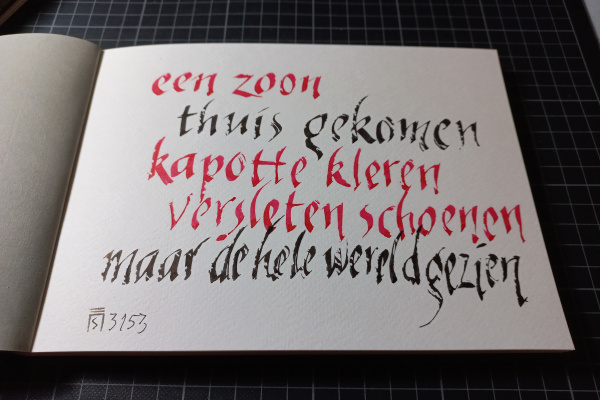 een zoon
thuis gekomen
kapotte kleren
versleten schoenen
maar de hele wereld gezien
3153